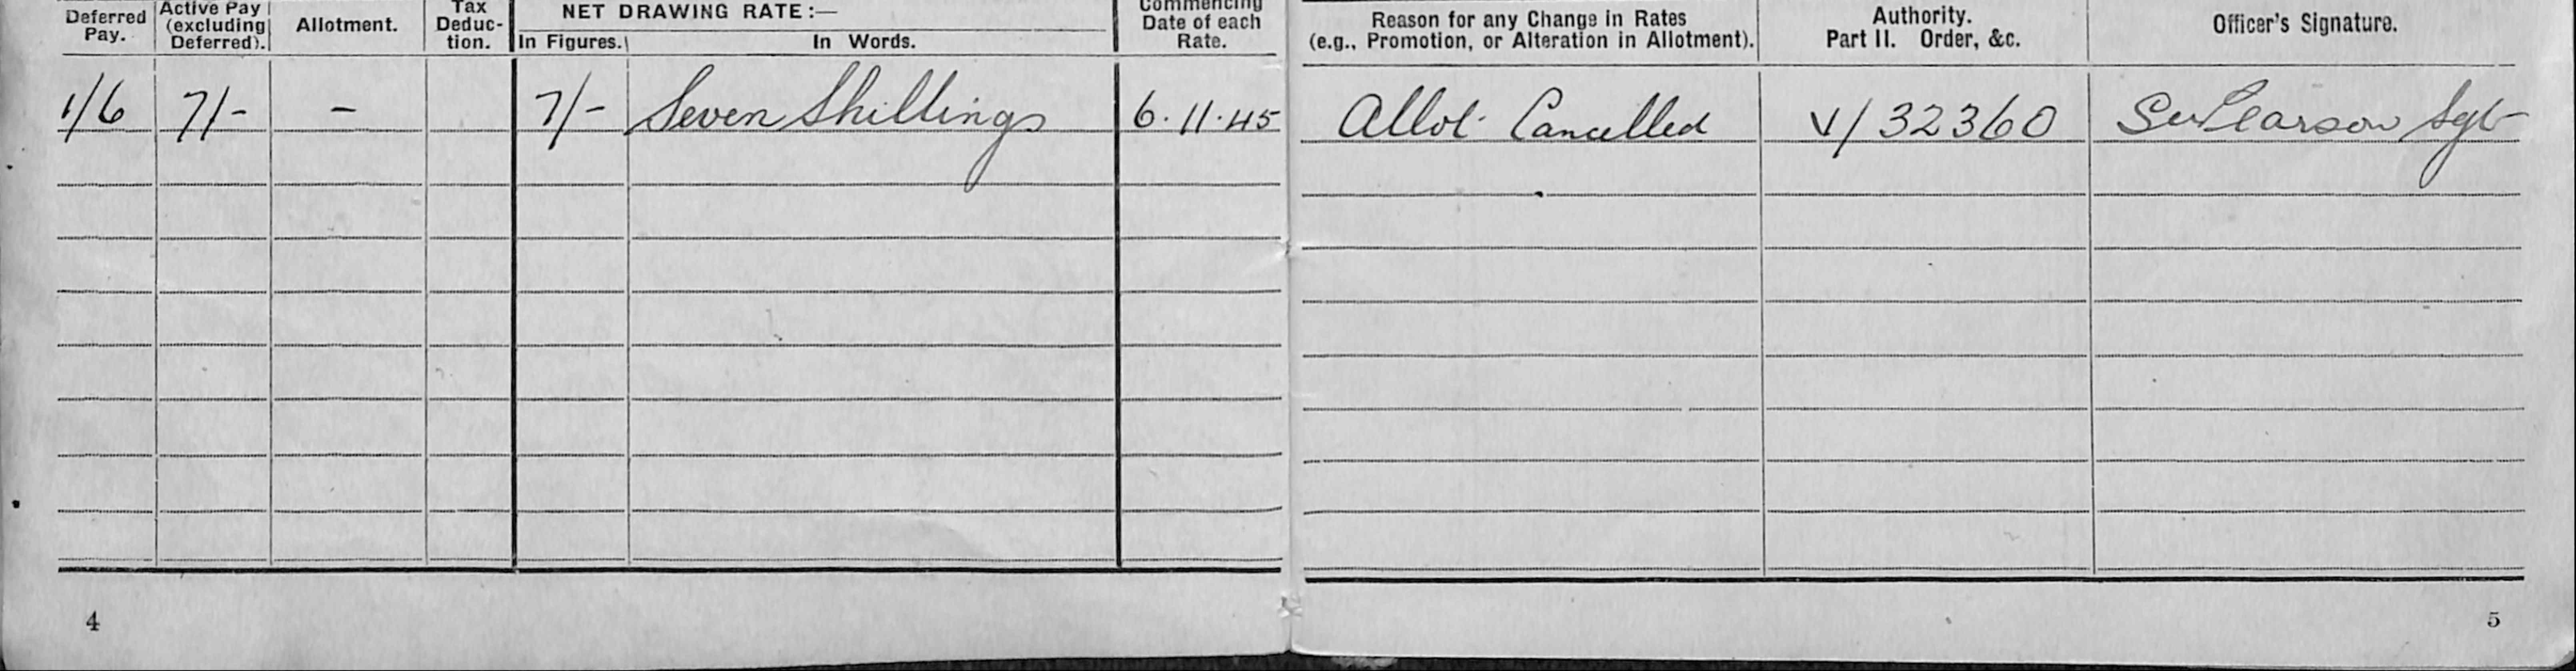 Deferred Pay. Active Pay (excluding Deferred). Allotment. Tax Deduc- tion. NET DRAWING RATE:— In Figures. In Words. Commencing Date of each Rate. Reason for any Change in Rates (e.g., Promotion, or Alteration in Allotment). Authority. Part II. Order, &c. Officer's Signature.
1/6 7/- - 7/- Seven Shillings 6.11.45 Allot. Cancelled V/32360 Pearson Sgt
4 5